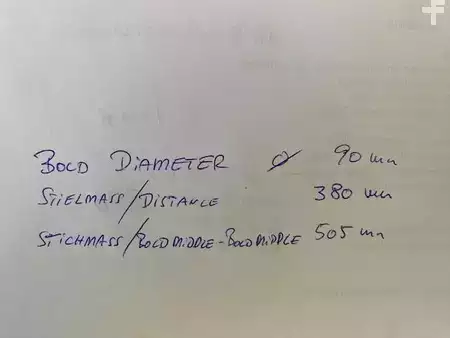 BOLD DIAMETER Ø 90 mm
STIELMASS/DISTANCE 380 mm
STICHMASS/BOLDMIDDLE-BOLDMIDDLE 505 mm